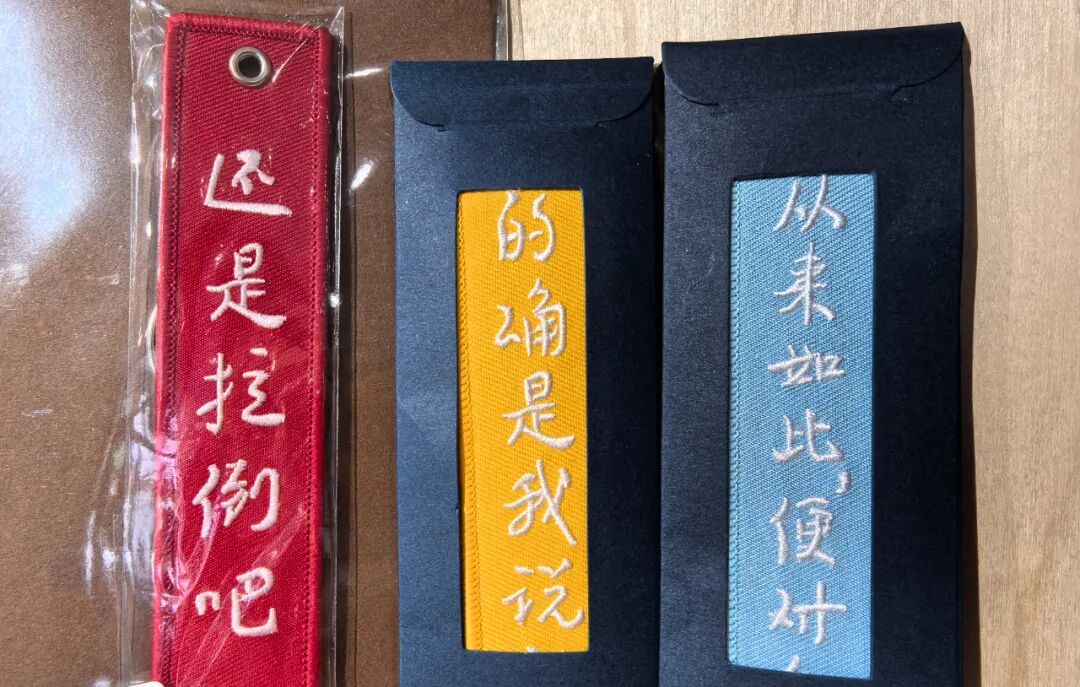 还是拉倒吧
的确是我说
从来如此,便对